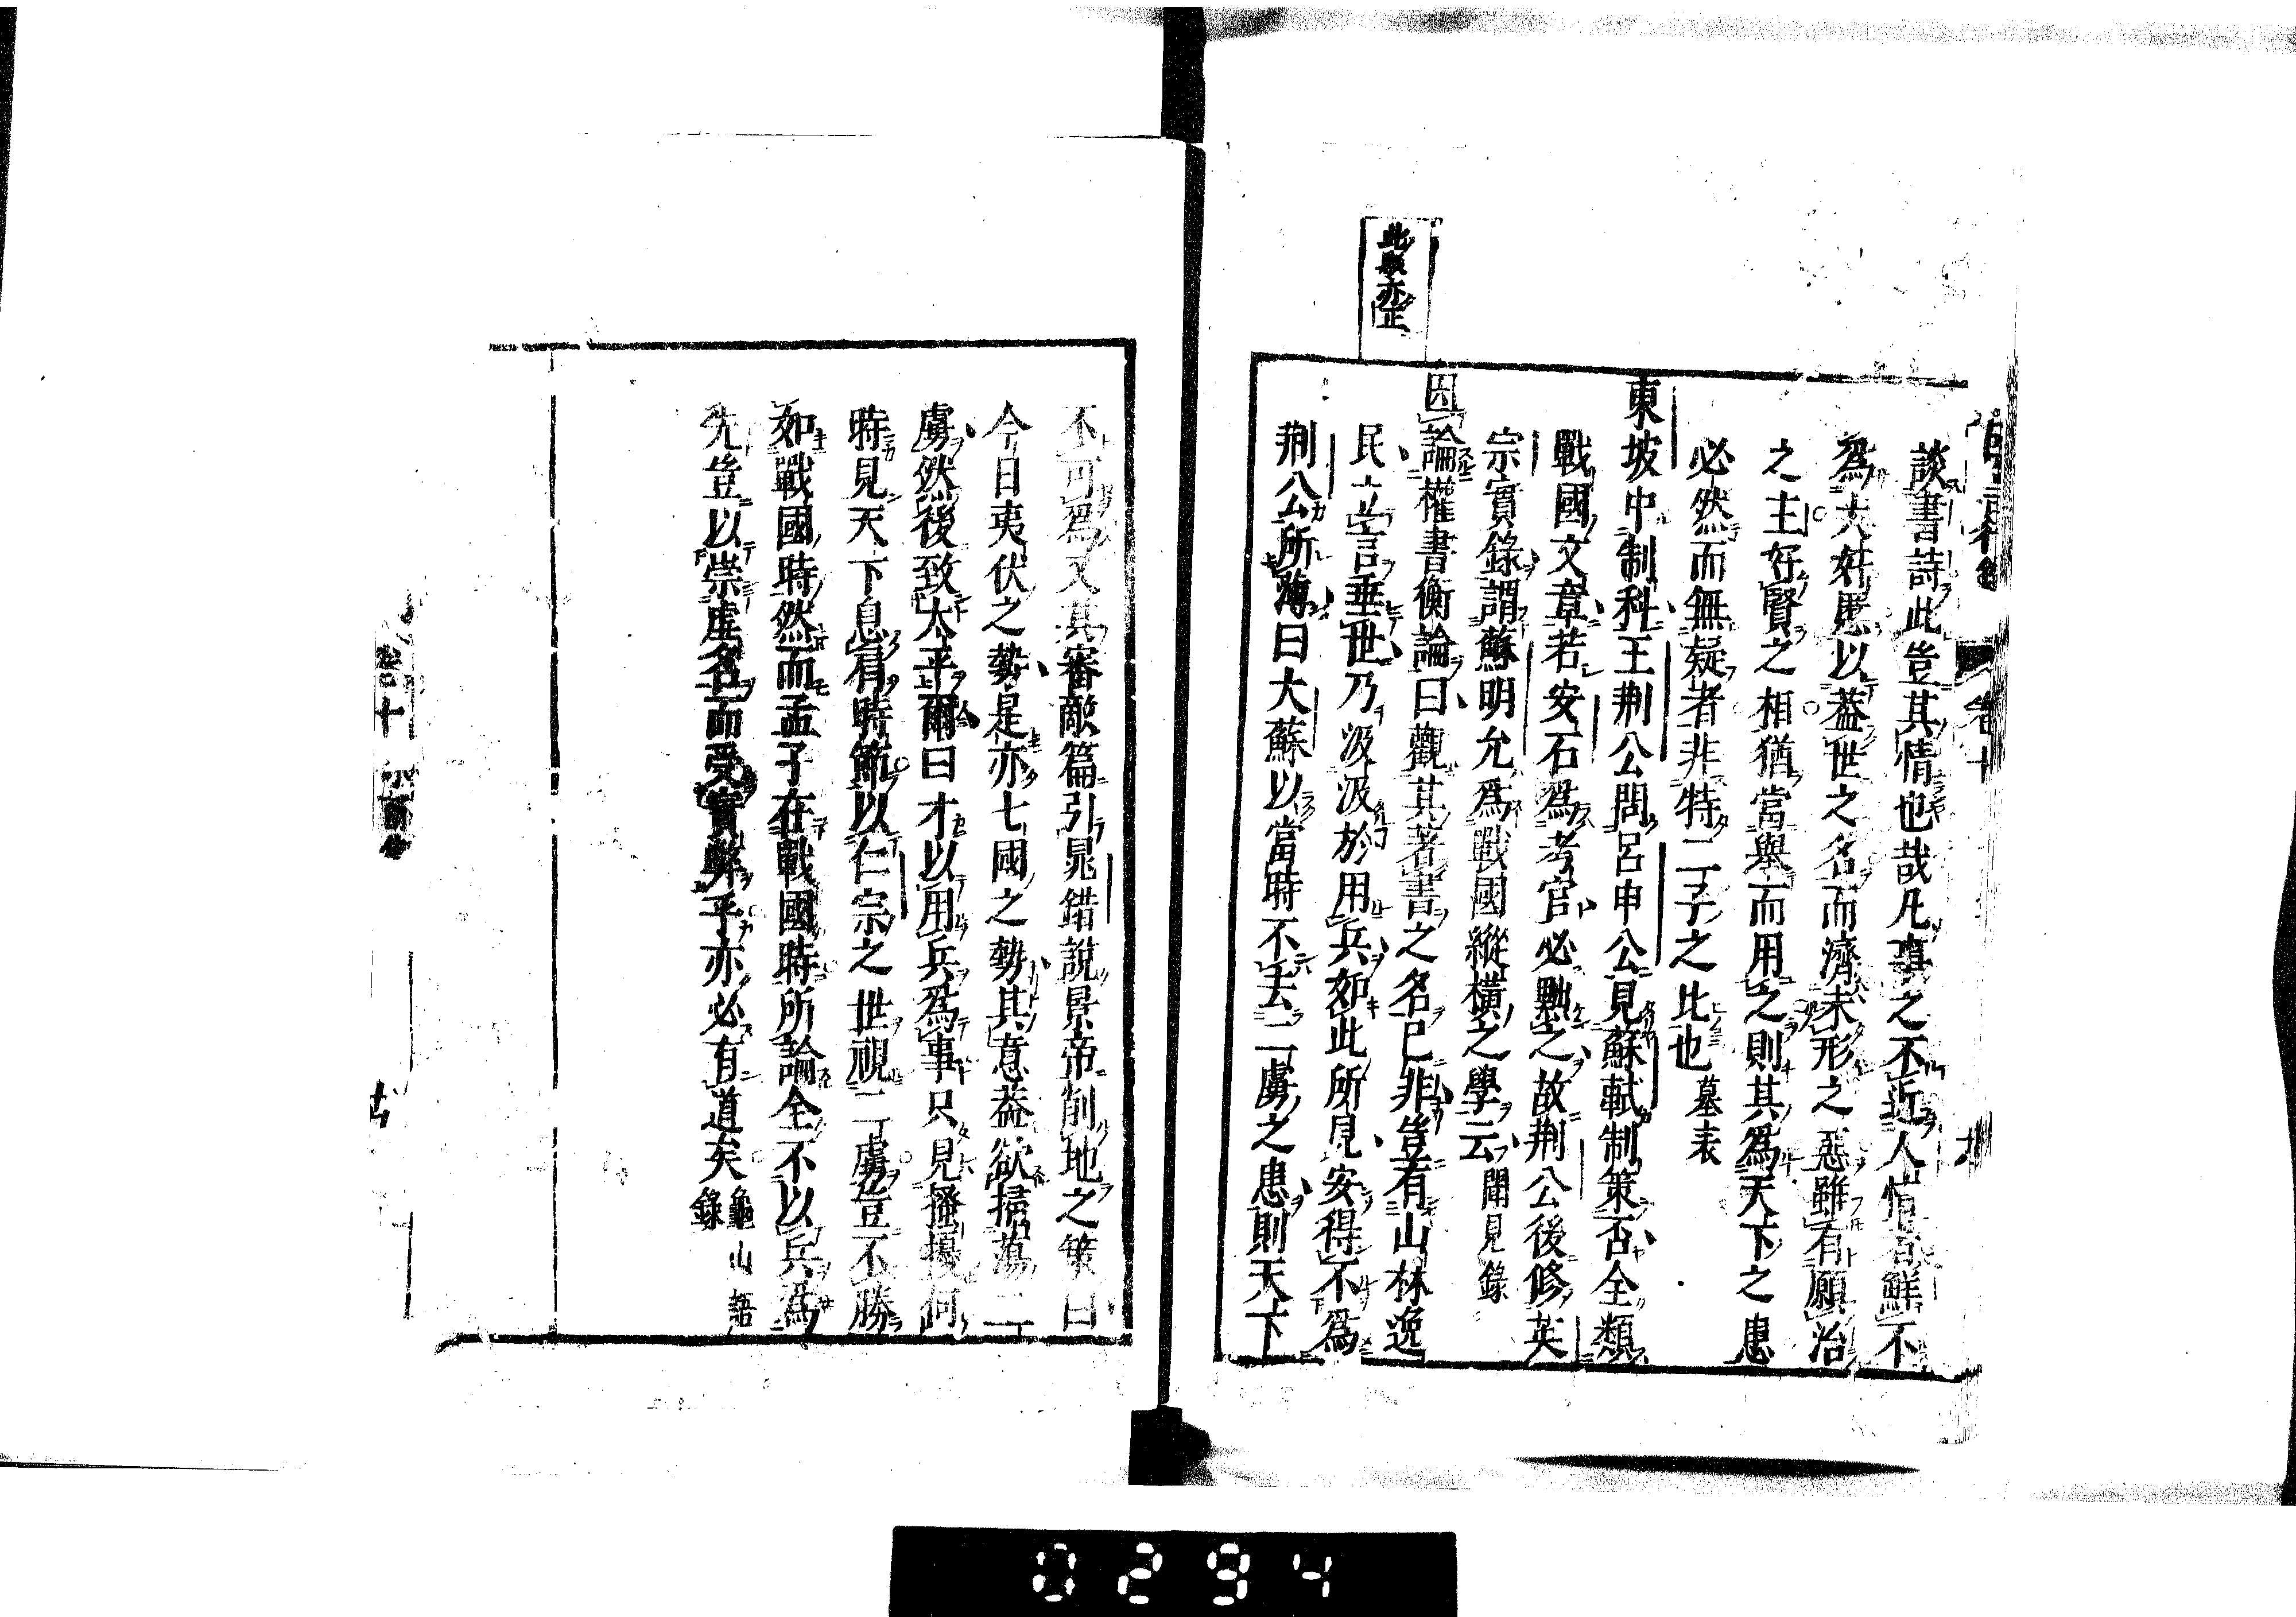 談書詩此豈其情也哉凡事之不近人情者鮮不
爲大姧慝以蓋世之名而濟未形之惡雖有願治
之主好賢之相猶當舉而用之則其爲天下之患
必然而無疑者非特二子之比也墓表
東坡中制科王荆公問呂申公見蘇軾制策否全類
戰國文章若安石爲考官必黜之故荆公後修英
宗實錄謂蘇明允爲戰國縱橫之學云聞見錄
因論權書衡論曰觀其著書之名已非豈有山林逸
民立言垂世乃汲汲於用兵如此所見安得不爲
荆公所薄曰大蘇以當時不去二虜之患則天下
此段亦正
不可爲又其審敵篇引晁錯說景帝削地之策曰
今日夷伏之勢是亦七國之勢其意蓋欲掃蕩二
虜然後致太平爾曰才以用兵爲事只見搔擾何
時見天下息肩時節以仁宗之世視二虜豈不勝
如戰國時然而孟子在戰國時所論全不以兵爲
先豈以崇虛名而受實弊乎亦必有道矣龜山語
錄
卷十
0294